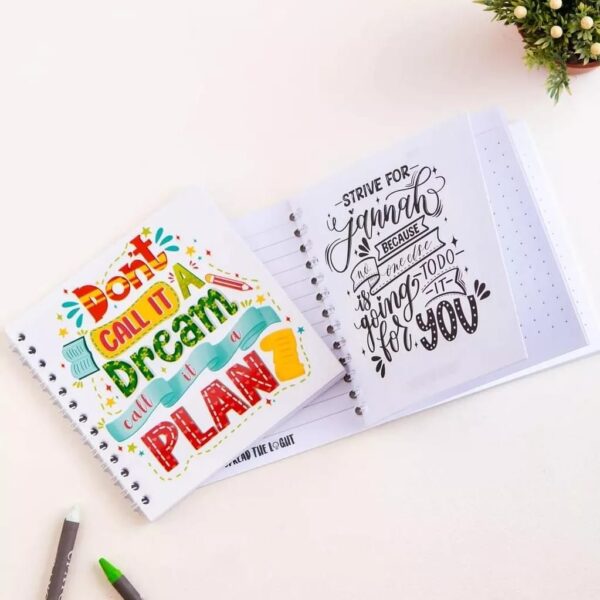 Dont
CALL IT A
Dream
call it a
PLAN
STRIVE FOR
Jannah
BECAUSE
no
one else
is
going TO DO
IT
for YOU
SPREAD THE LIGHT